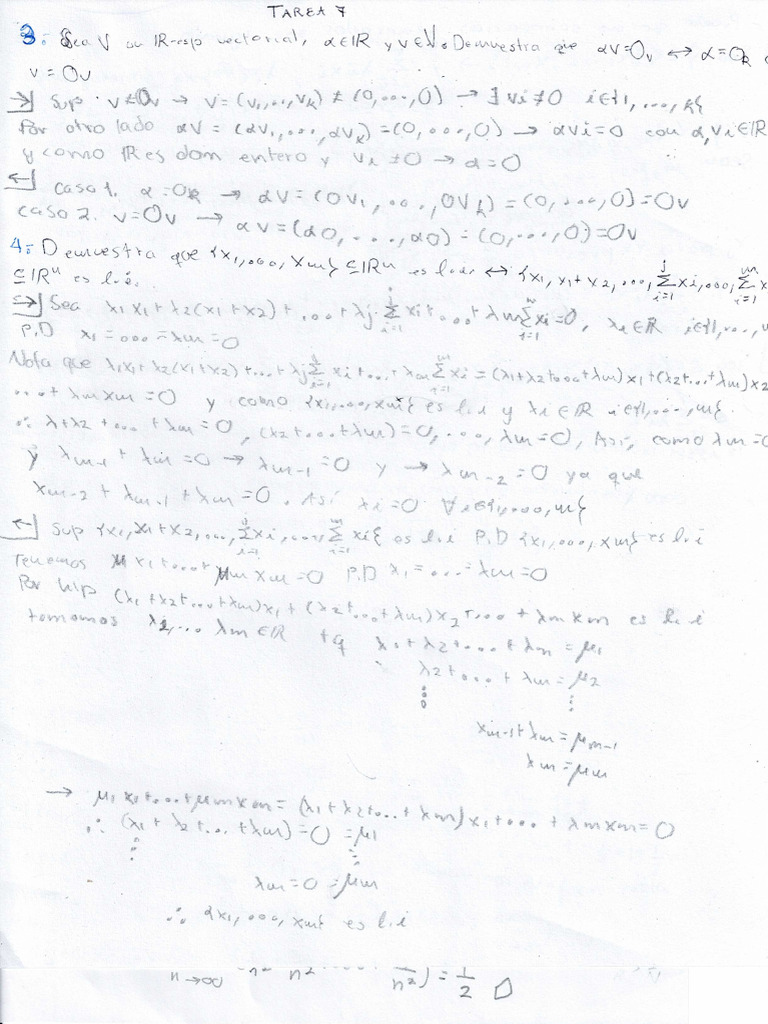 TAREA 7
3.- Sea V un IR-esp vectorial, α∈IR y v∈V. Demuestra que αv=0v ↔ α=0R
v = 0v
→] Sup v≠0v → v=(v1,...,vk) ≠ (0,...,0) → ∃ vi≠0 i∈{1,...,k}
Por otro lado αv = (αv1,...,αvk)=(0,...,0) → αvi=0 con α,vi∈IR
y como IR es dom entero y vi≠0 → α=0
←] caso 1. α=0R → αv=(0v1,...,0vk)=(0,...,0)=0v
caso 2. v=0v → αv=(α0,...,α0)=(0,...,0)=0v
4.- Demuestra que {x1,...,xm}⊆IRⁿ es l.i. ↔ {x1, x1+x2,..., Σ(i=1)^j xi,..., Σ(i=1)^m x
⊆IRⁿ es l.i.
→] Sea λ1x1+λ2(x1+x2)+...+λj Σ(i=1)^j xi+...+λm Σ(i=1)^m xi=0, λi∈IR i∈{1,...,
P.D λ1=...=λm=0
Nota que λ1x1+λ2(x1+x2)+...+λj Σ(i=1)^j xi+...+λm Σ(i=1)^m xi=(λ1+λ2+...+λm)x1+(λ2+...+λm)x2
...+λmxm=0 y como {x1,...,xm} es l.i y λi∈IR i∈{1,...,m}.
∴ λ1+λ2+...+λm=0, (λ2+...+λm)=0,..., λm=0, Así, como λm=0
y λm-1+λm=0 → λm-1=0 y → λm-2=0 ya que
λm-2+λm-1+λm=0. Así λi=0 ∀i∈{1,...,m}
←] Sup {x1, x1+x2,..., Σ(i=1)^j xi,..., Σ(i=1)^m xi} es l.i P.D {x1,...,xm} es l.i
Tenemos μ1x1+...+μmxm=0 P.D λ1=...=λm=0
Por hip (λ1+λ2+...+λm)x1+(λ2+...+λm)x2+...+λmxm es l.i
tomamos λi,...λm∈IR tq λ1+λ2+...+λm=μ1
λ2+...+λm=μ2
⋮ ⋮
λm-1+λm=μm-1
λm=μm
→ μ1x1+...+μmxm=(λ1+λ2+...+λm)x1+...+λmxm=0
∴ (λ1+λ2+...+λm)=0=μ1
⋮ ⋮
λm=0=μm
∴ {x1,...,xm} es l.i
n→∞ n² n² n²)=1/2 □